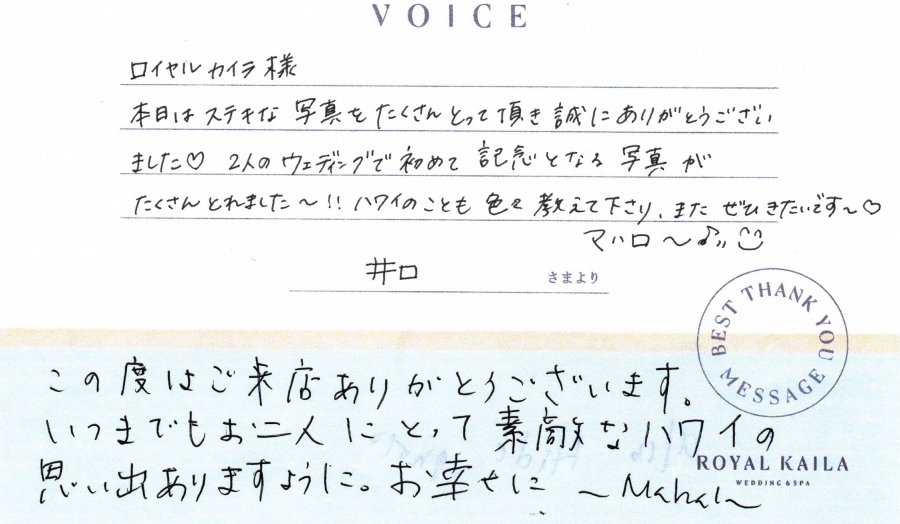 VOICE
ロイヤルカイラ様
本日はステキな写真をたくさんとって頂き誠にありがとうござい
ました♡ 2人のウェディングで初めて記念となる写真が
たくさんとれました〜!! ハワイのことも色々教えて下さり、また ぜひきたいです〜♡
マハロ〜♪
井口 さまより
BEST THANK YOU MESSAGE
この度はご来店ありがとうございます。
いつまでもお二人にとって素敵なハワイの
思い出ありますように。お幸せに 〜Mahalo
ROYAL KAILA
WEDDING & SPA